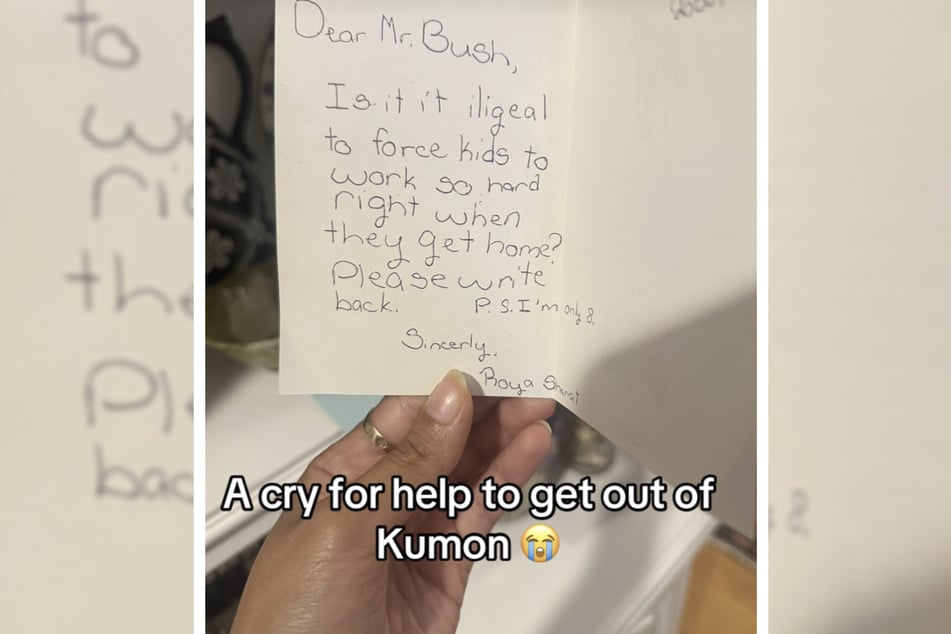 Dear Mr. Bush,
Is it it iligeal
to force kids to
work so hard
right when
they get home?
Please write
back. P.S. I'm only 8.
Sincerly,
Roya
A cry for help to get out of
Kumon 😭